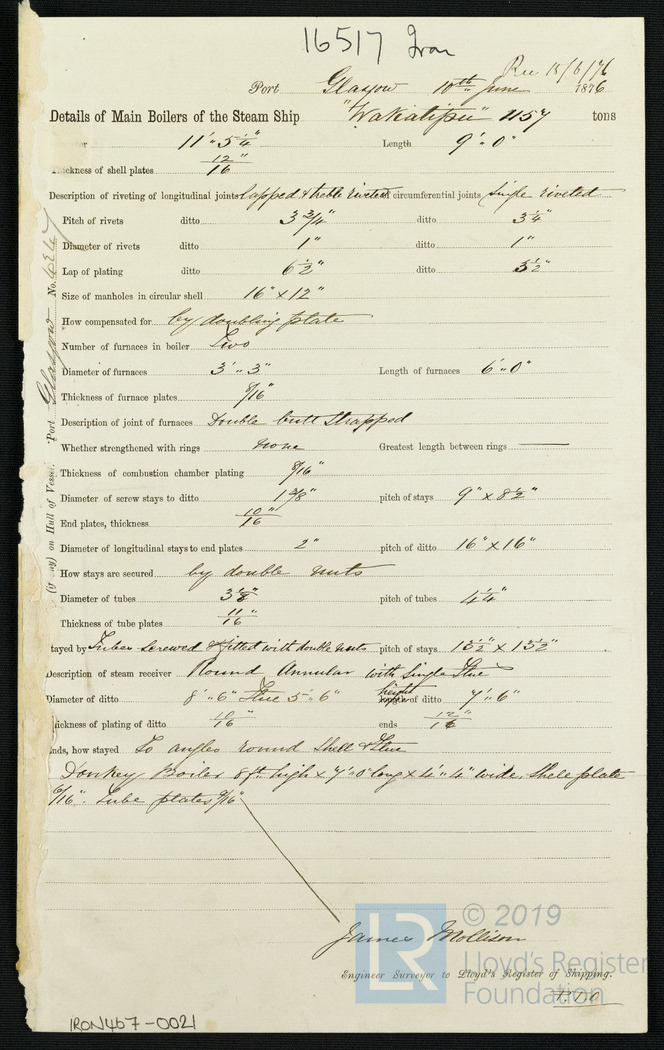 16517 Iron
Rec 18/6/76
Port Glasgow 10th June 1876
Details of Main Boilers of the Steam Ship "Wakatipu" 1157 tons
11'.5¼" Length 9'.0"
Thickness of shell plates 12/16"
Description of riveting of longitudinal joints Lapped & treble riveted circumferential joints Single riveted
Pitch of rivets ditto 3¾" ditto 3¼"
Diameter of rivets ditto 1" ditto 1"
Lap of plating ditto 6½" ditto 3½"
Size of manholes in circular shell 16" x 12"
How compensated for by doubling plate
Number of furnaces in boiler Two
Diameter of furnaces 3'.. 3" Length of furnaces 6'.0"
Thickness of furnace plates 8/16"
Description of joint of furnaces Double butt Strapped
Whether strengthened with rings none Greatest length between rings —
Thickness of combustion chamber plating 8/16"
Diameter of screw stays to ditto 1⅜" pitch of stays 9" x 8½"
End plates, thickness 10/16"
Diameter of longitudinal stays to end plates 2" pitch of ditto 16" x 16"
How stays are secured by double nuts
Diameter of tubes pitch of tubes 4¼"
Thickness of tube plates 11/16"
stayed by Tubes screwed & fitted with double nuts pitch of stays 13½" x 13½"
Description of steam receiver Round Annular with Single Flue
Diameter of ditto 8'.. 6" Flue 5'.. 6" height of ditto 7'.. 6"
Thickness of plating of ditto 10/16 ends 12/16"
Ends, how stayed To angles round Shell & Flue
Donkey Boiler 8 ft. high x 7'..0" long x 4'.. 4" wide. Shell plate
6/16". Tube plates 9/16"
James Mollison
Engineer Surveyor to Lloyd's Register of Shipping.
P.T.O
Port Glasgow No.
(if any) on Hull of Vessel.
© 2019
LR Lloyd's Register
Foundation
IRON467-0021